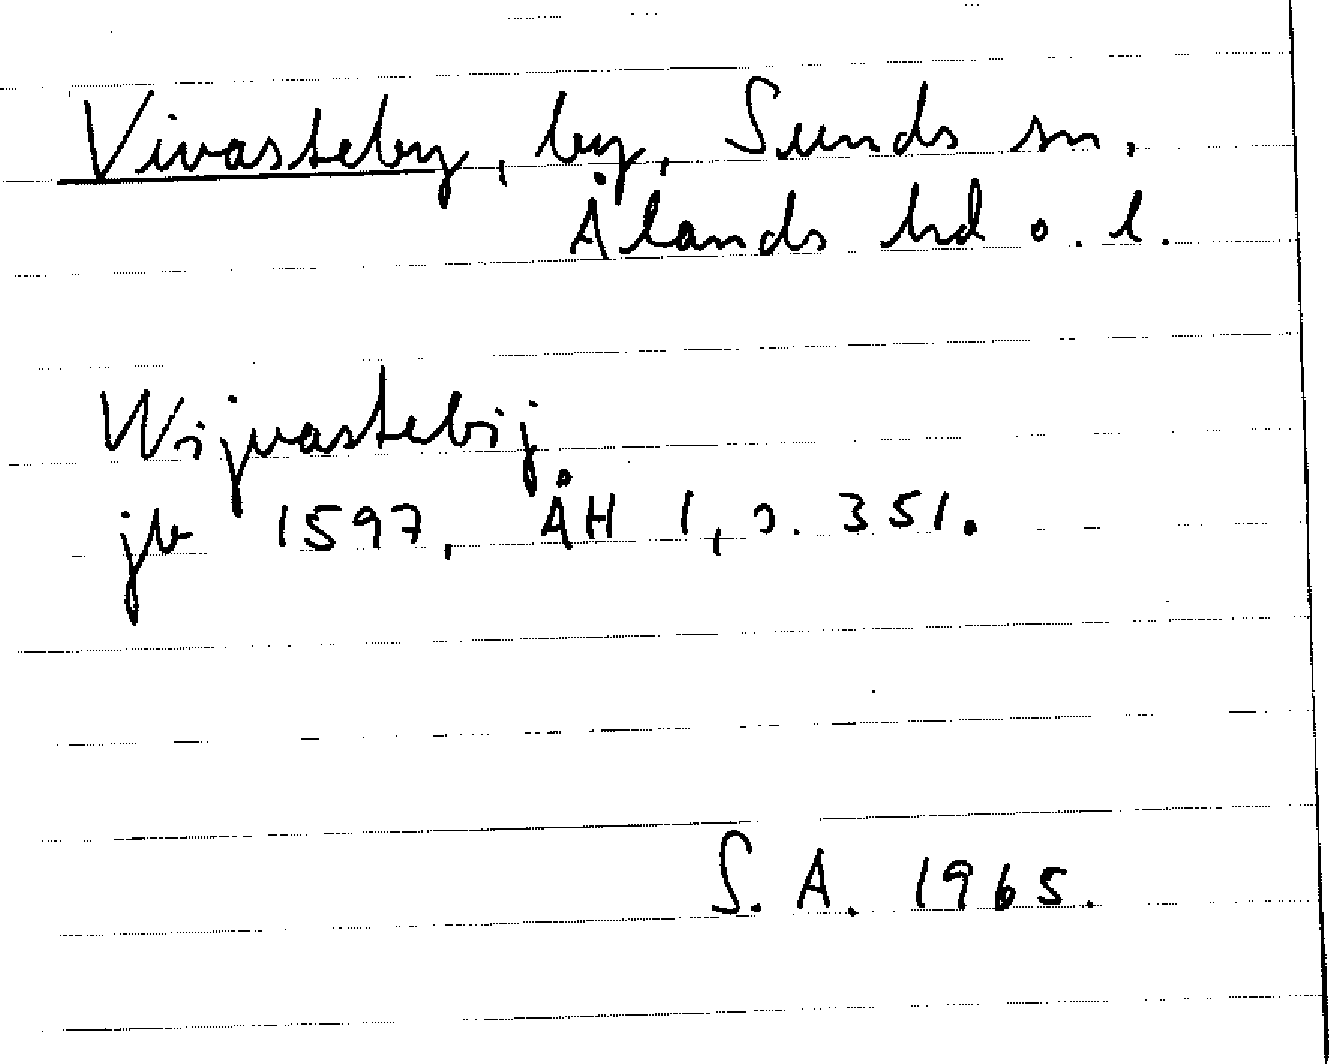 Vivasteby, by, Sunds sn,
Ålands hd o. l.
Wijvastebij
jb 1597, ÅH 1, s. 351.
S. A. 1965.